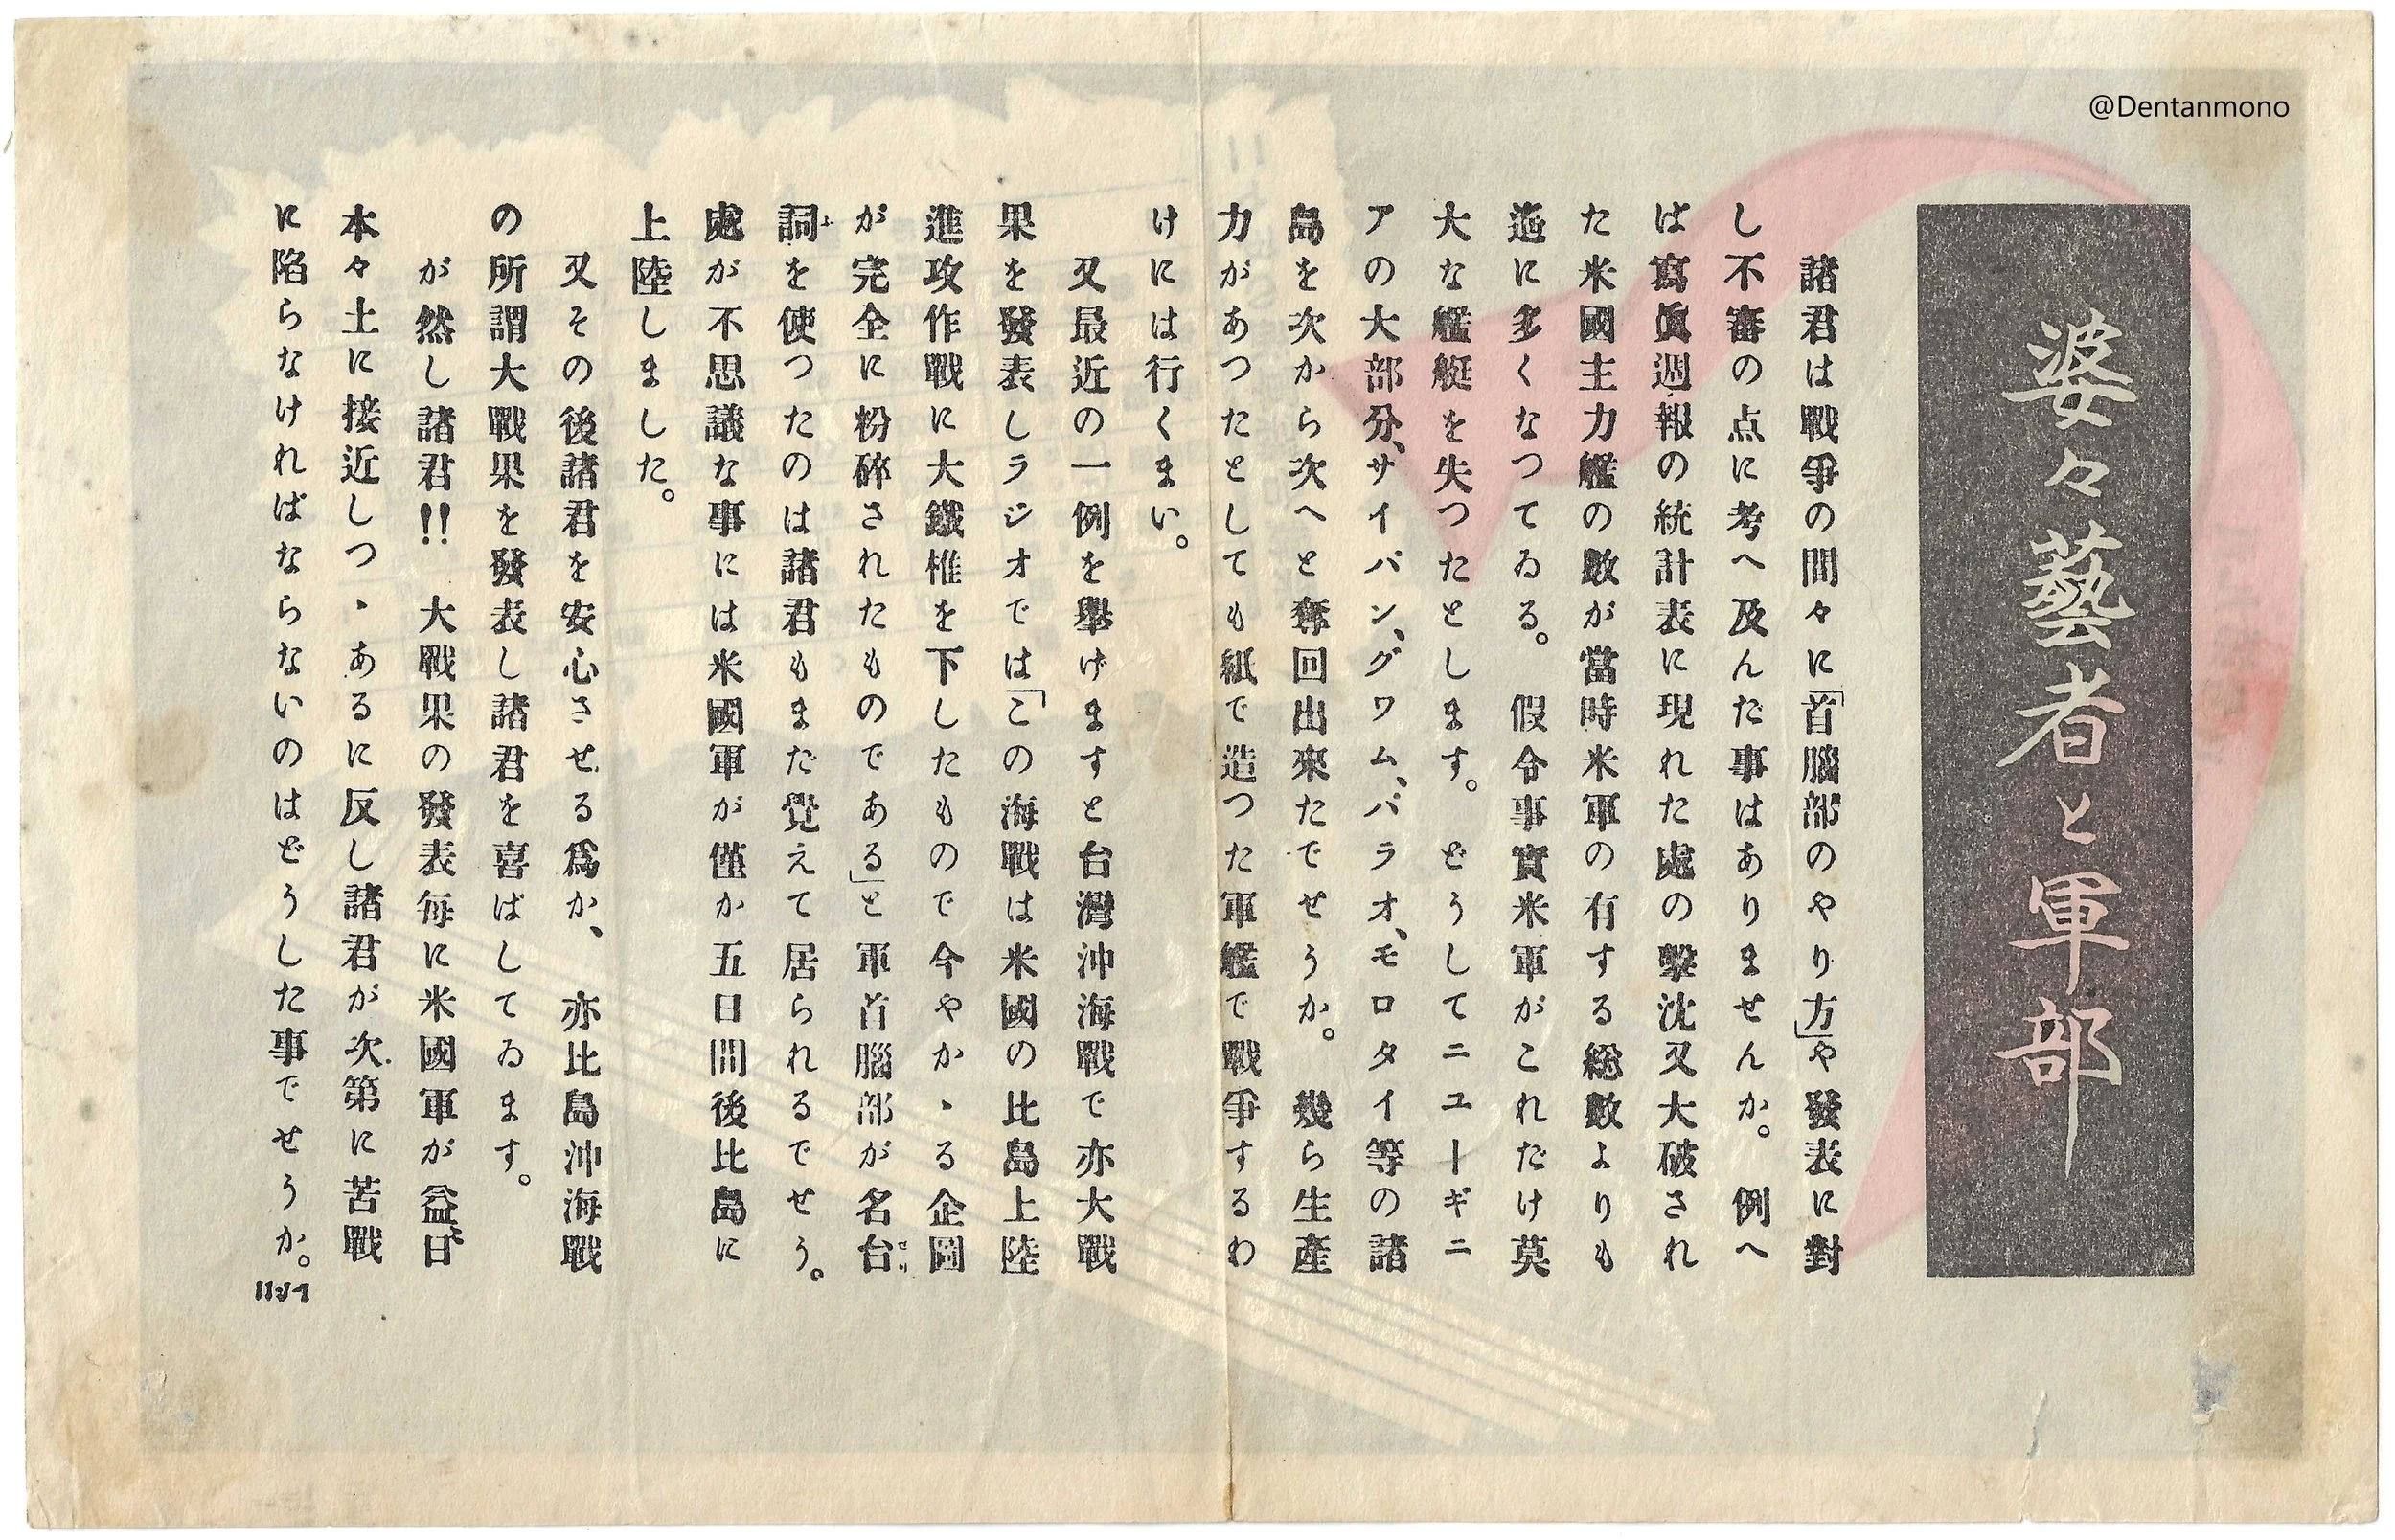 @Dentanmono
婆々藝者と軍部
諸君は戰爭の間々に「首腦部のやり方」や發表に對
し不審の点に考へ及んだ事はありませんか。例へ
ば寫眞週報の統計表に現れた處の撃沈又大破され
た米國主力艦の數が當時米軍の有する総數よりも
遙に多くなつてゐる。假令事實米軍がこれだけ莫
大な艦艇を失つたとします。どうしてニユーギニ
アの大部分、サイパン、グワム、パラオ、モロタイ等の諸
島を次から次へと奪回出來たでせうか。幾ら生産
力があつたとしても紙で造つた軍艦で戰爭するわ
けには行くまい。
又最近の一例を舉げますと台灣沖海戰で亦大戰
果を發表しラジオでは「この海戰は米國の比島上陸
進攻作戰に大鐵椎を下したもので今やかゝる企圖
が完全に粉碎されたものである」と軍首腦部が名台
詞を使つたのは諸君もまだ覚えて居られるでせう。
處が不思議な事には米國軍が僅か五日間後比島に
上陸しました。
又その後諸君を安心させる爲か、亦比島沖海戰
の所謂大戰果を發表し諸君を喜ばしてゐます。
が然し諸君!! 大戰果の發表每に米國軍が益〻日
本々土に接近しつゝあるに反し諸君が次第に苦戰
に陷らなければならないのはどうした事でせうか。